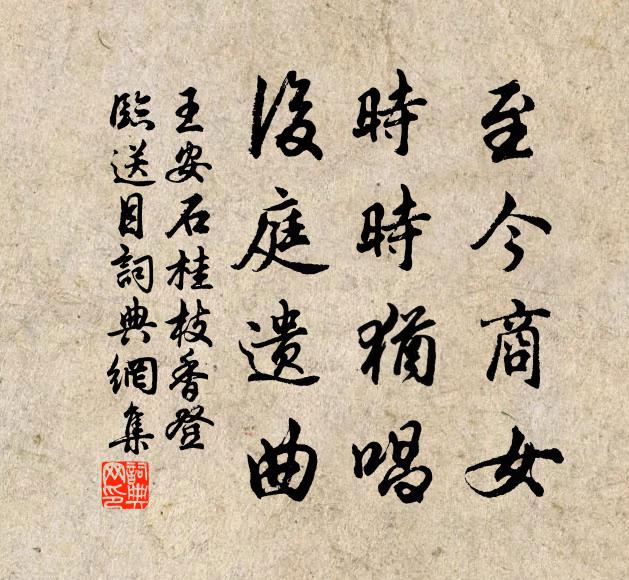 至今商女
時時猶唱
後庭遺曲
王安石桂枝香登
臨送目詞典網集
詞典
網印